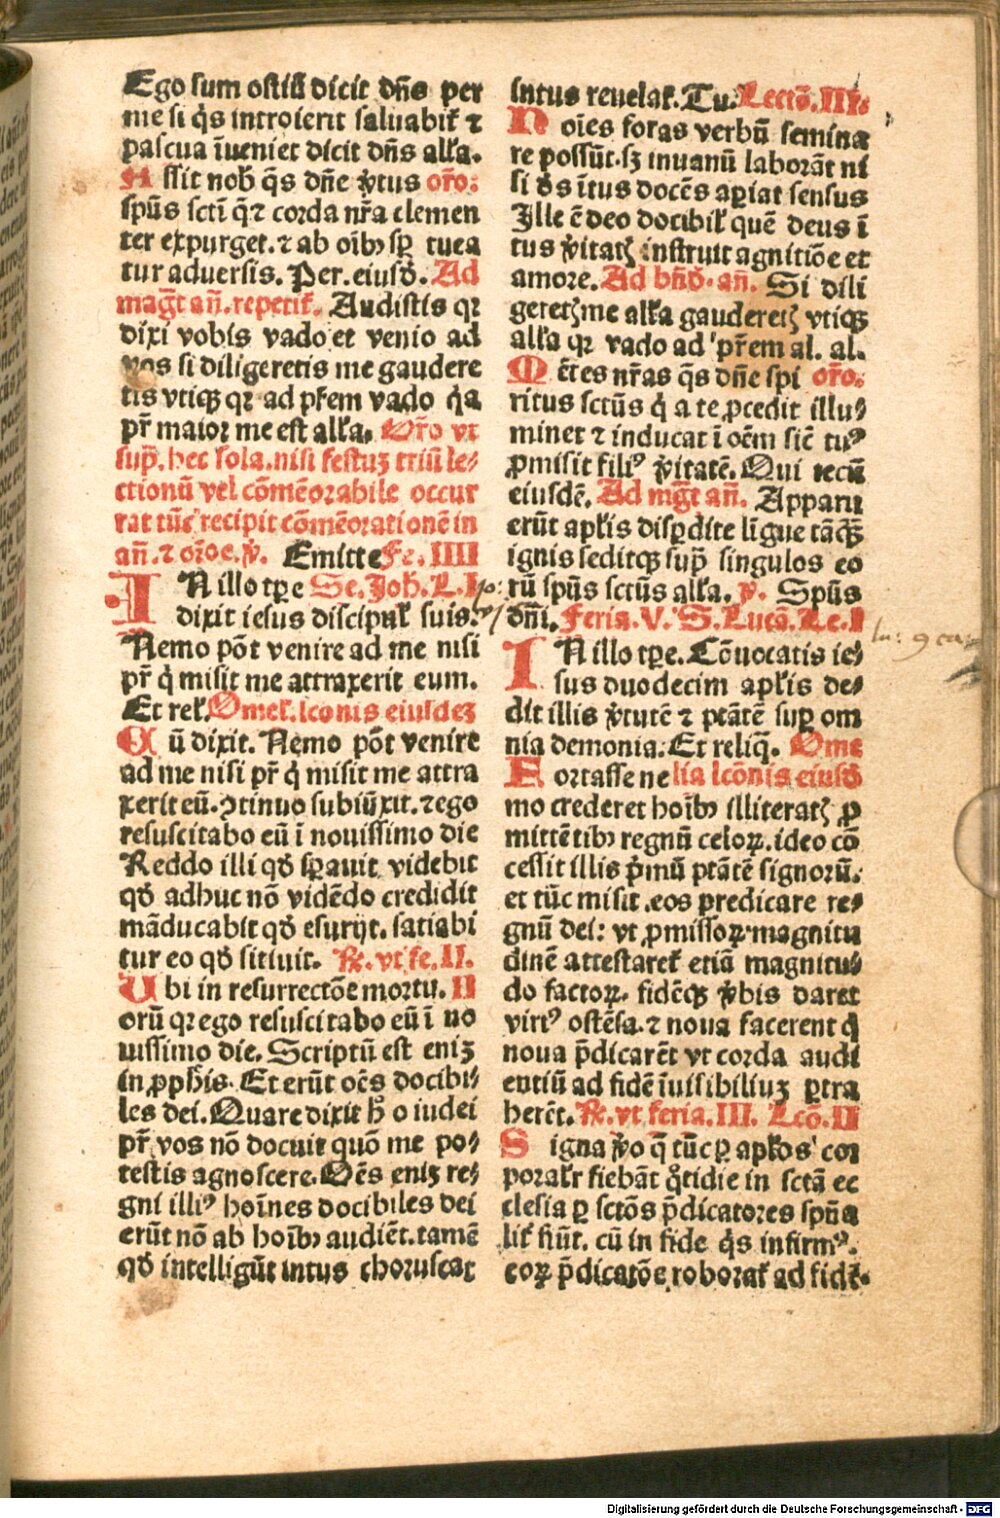 Ego sum ostiū dicit dn̄s per
me si q̇s introierit saluabit̄ ⁊
pascua īueniet dicit dn̄s all̄a.
Assit nob̄ q̄s dn̄e v̄tus or̄o:
sp̄us sct̄i q̄⁊ corda nr̄a clemen
ter expurget. ⁊ ab oīb⁹ sꝑ tuea
tur aduersis. Per. eiusd̄. Ad
mag̅t an̄. repetit̄. Audistis qꝛ
dixi vobis vado et venio ad
vos si diligeretis me gaudere
tis vtiqꝫ qꝛ ad pr̄em vado q̇a
pr̄ maior me est all̄a. Or̄o vt
sup̄. hec sola. nisi festuꝫ triū le⸗
ctionū vel cōmēorabile occur
rat tūc recipit cōmēorationē in
an̄. ⁊ or̄oe. v̄. Emitte Fe. IIII
IN illo tꝑe Se. Joh. L. I
dixit iesus discipul̄ suis.
Nemo pōt venire ad me nisi
pr̄ q̇ misit me attraxerit eum.
Et rel̄. Omel̄. lc̄onis eiusdeꝫ
Qū dixit. Nemo pōt venire
ad me nisi pr̄ q̇ misit me attra
xerit eū. ꝯtinuo subiūxit. ⁊ ego
resuscitabo eū ī nouissimo die
Reddo illi qd̄ sꝑauit videbit
qd̄ adhuc nō vidēdo credidit
māducabit qd̄ esurijt. satiabi
tur eo qd̄ sitiuit. ℟. vt fe. II.
Ubi in resurrectōe mortu. II
orū qꝛ ego resuscitabo eū ī no
uissimo die. Scriptū est eniꝫ
in ꝓph̄is. Et erūt oēs docibi⸗
les dei. Quare dixit h̄ o iudei
pr̄ vos nō docuit quō me po⸗
testis agnoscere. Oēs eniꝫ re⸗
gni illi⁹ hoīnes docibiles dei
erūt nō ab hoīb⁹ audiēt. tamē
qd̄ intelligūt intus choruscat
intus reuelat̄. Tu. Lectō. III.
Noīes foras verbū semina
re possūt. sꝫ inuanū laborāt ni
si d̄s ītus docēs aꝑiat sensus
Ille ē deo docibil̄ quē deus ī
tus v̄itatꝭ instruit agnitiōe et
amore. Ad bn̄d̄. an̄. Si dili
geretꝭ me all̄a gauderetꝭ vtiqꝫ
all̄a qꝛ vado ad pr̄em al. al.
Mētes nr̄as q̄s dn̄e spi or̄o.
ritus sctūs q̇ a te ꝓcedit illu⸗
minet ⁊ inducat ī oēm sic̄ tu⁹
ꝓmisit fili⁹ v̄itatē. Qui tecū
eiusdē. Ad mg̅t an̄. Apparu
erūt apl̄is disꝑdite līgue tāqꝫ
ignis seditqꝫ sup̄ singulos eo
rū sp̄us sctūs all̄a. v̄. Sp̄us
dn̄i. Feria. V. S. Lucā. Le. I
lu: 9 ca:
IN illo tꝑe. Cōuocatis ie⸗
sus duodecim apl̄is de⸗
dit illis v̄tutē ⁊ ptātē suꝑ om
nia demonia. Et reliq̄. Ome
Fortasse ne lia lcōnis eiusd̄
mo crederet hoīb⁹ illiteratꝭ ꝓ
mittētib⁹ regnū celoꝝ. ideo cō
cessit illis p̄mū ptātē signorū.
et tūc misit eos predicare re⸗
gnū dei: vt ꝓmissoꝝ magnitu
dinē attestaret̄ etiā magnitu⸗
do factoꝝ. fidēqꝫ v̄bis daret
virt⁹ ostēsa. ⁊ noua facerent q̇
noua p̄dicarēt vt corda audi
entiū ad fidē īuisibiliuꝫ ꝑtra
herēt. ℟. vt feria. III. Lcō. II
Signa v̄o q̄ tūc ꝑ apl̄os cor
poralr̄ fiebāt q̊tidie in sctā ec
clesia ꝑ sctōs p̄dicatores sp̄ua
lit̄ fiūt. cū in fide q̇s infirm⁹.
eoꝝ p̄dicatōe roborat̄ ad fidē.
Digitalisierung gefördert durch die Deutsche Forschungsgemeinschaft - DFG